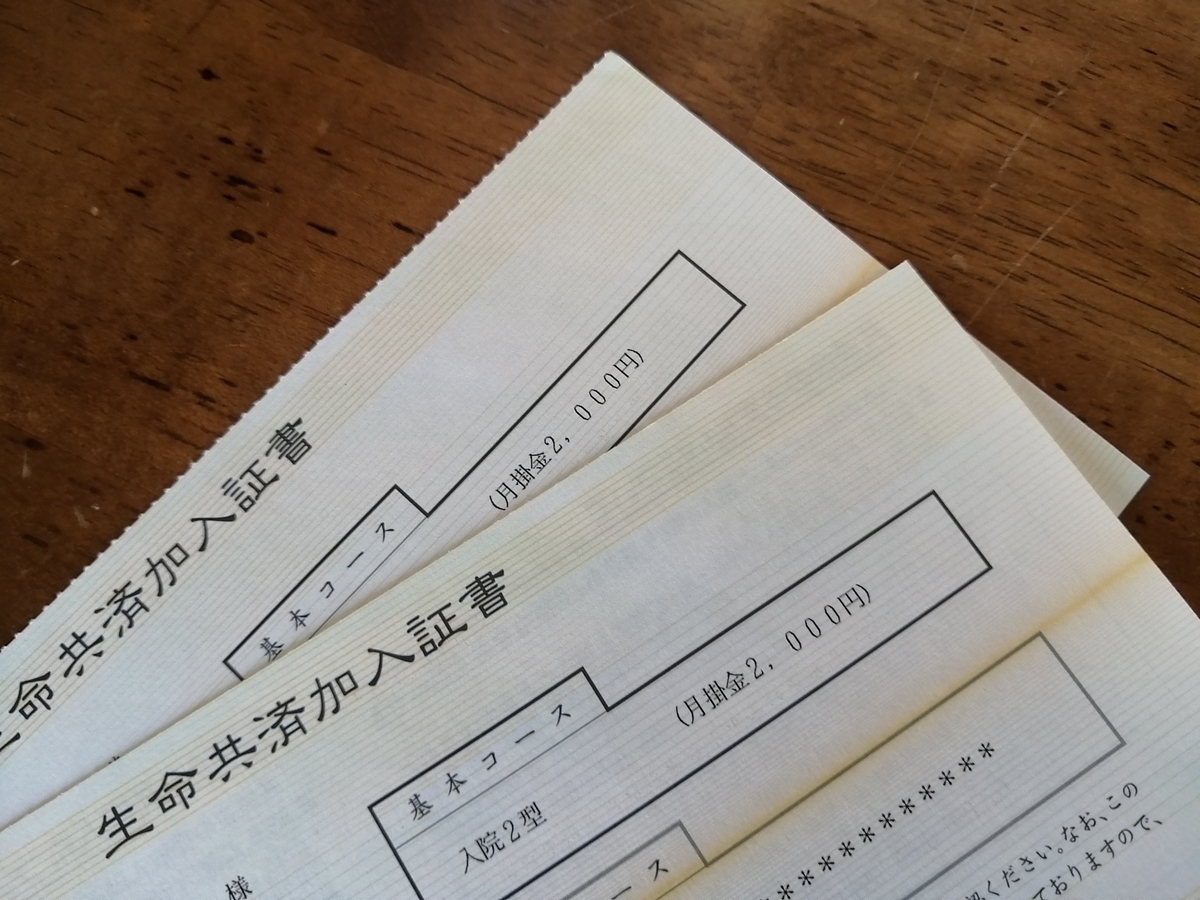 生命共済加入証書
基本コース
(月掛金2,000円)
生命共済加入証書
様
基本コース
入院2型
(月掛金2,000円)
ース
*************
ください。なお、この
ておりますので、